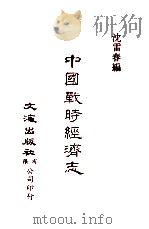 沈雷春編
中國戰時經濟志
文海出版社有限公司印行
www.toutiao.im